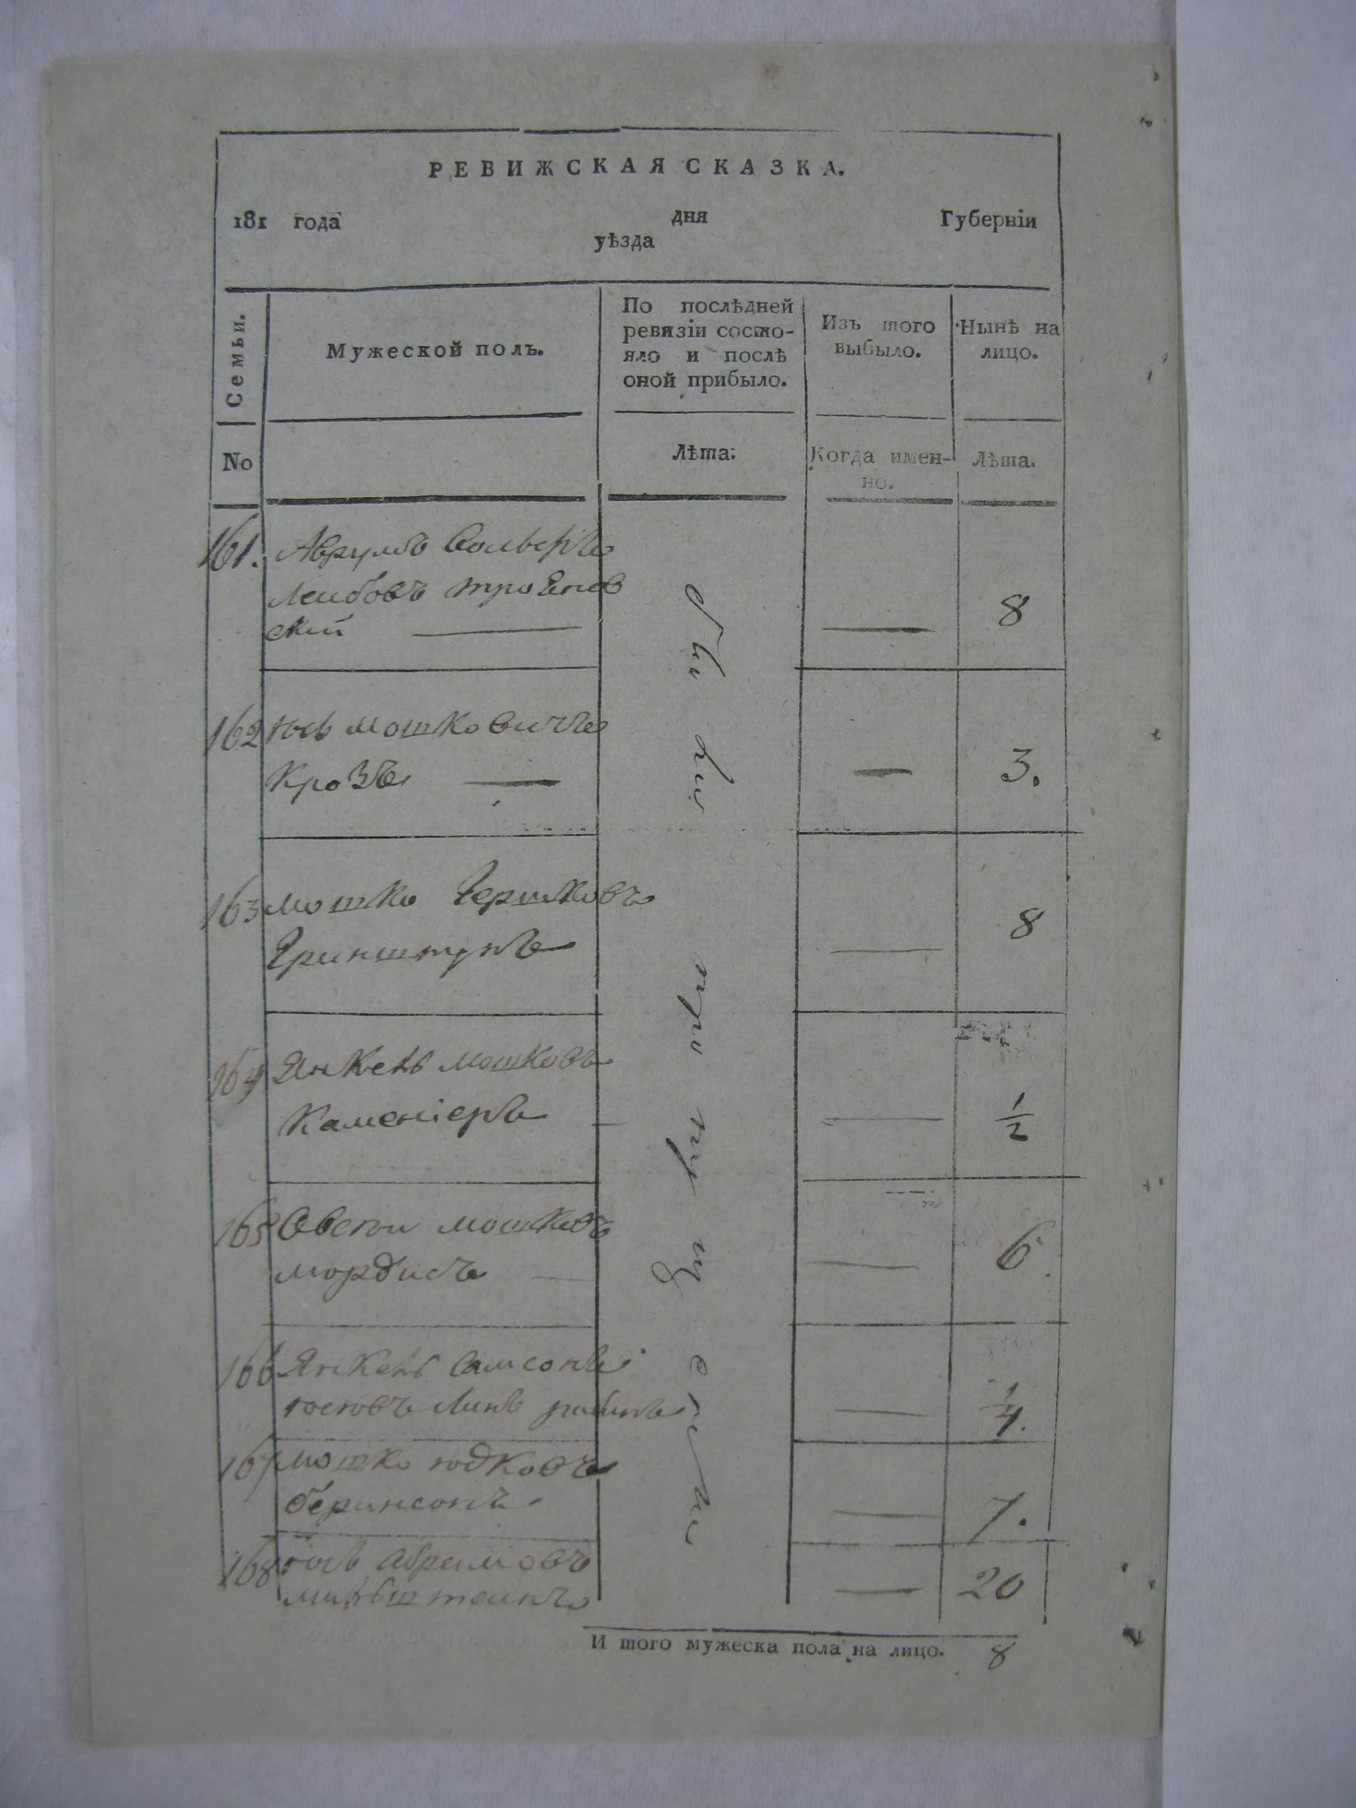 РЕВИЖСКАЯ СКАЗКА.
181 года дня Губерніи
уѣзда
Семьи.
Мужеской полъ.
По послѣдней
ревизіи состо-
яло и послѣ
оной прибыло.
Изъ того
выбыло.
Нынѣ на
лицо.
No
Лѣта:
Когда имен-
но.
Лѣта.
были пропущены
161. Аврумъ Вольфъ
Леибовъ троянов
ский — — 8
162 мошковичъ
Крозъ — — 3.
163 мошко Гершковъ
Гринштупъ — 8
164 Янкель мошковъ
Каменіеръ — — 1/2
165 мошковъ
мордисъ — — 6
166 Янкель Самсонъ
— 1/4.
167 мошко юдковъ
беринсонъ — 7.
168 абрамовъ
— 20
И того мужеска пола на лицо. 8